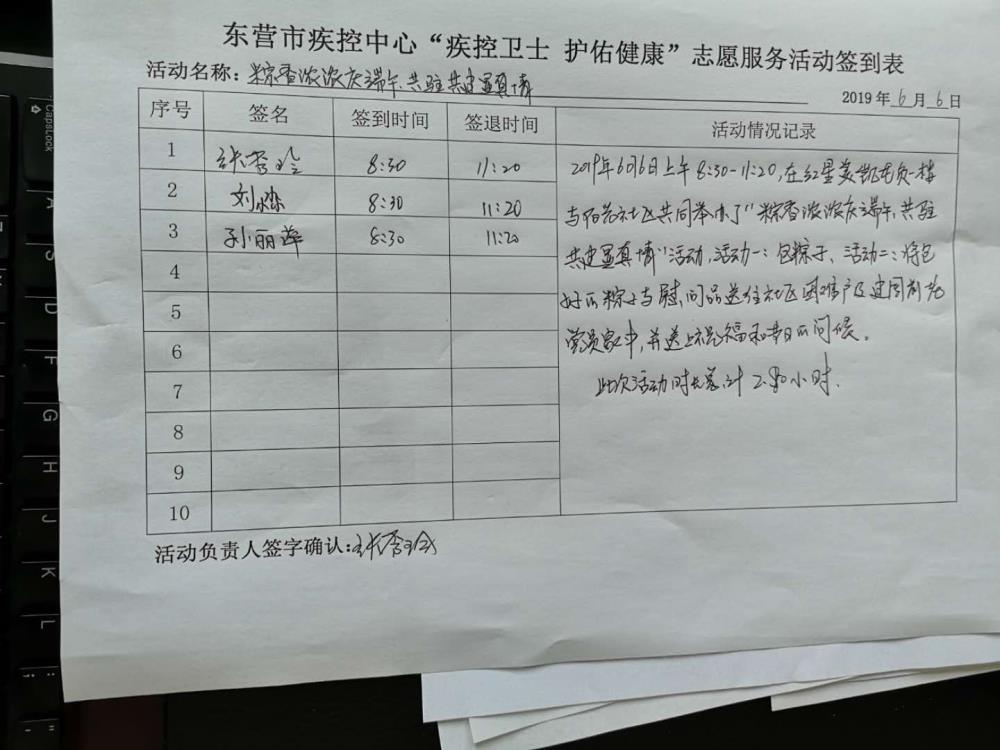 东营市疾控中心“疾控卫士 护佑健康”志愿服务活动签到表
活动名称：粽香浓浓庆端午 共驻共建显真情
2019年6月6日
序号 签名 签到时间 签退时间 活动情况记录
1 张秀玲 8:30 11:20
2 刘 8:30 11:20
3 孙丽萍 8:30 11:20
4
5
6
7
8
9
10
2019年6月6日上午8:30-11:20,在红星美凯龙负一楼
与阳光社区共同举办了“粽香浓浓庆端午、共驻
共建显真情”活动,活动一:包粽子、活动二:将包
好的粽子与慰问品送往社区困难户及建国前老
党员家中,并送上祝福和节日的问候。
此次活动时长总计2.80小时.
活动负责人签字确认:张秀玲
CapsLock
A
S
D
F
G
H
J
K
L